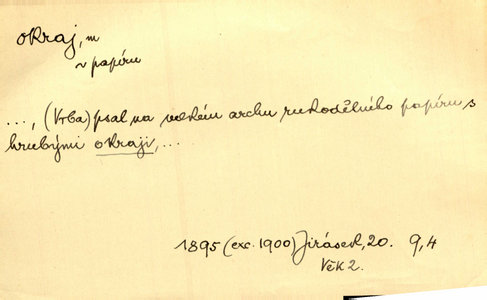 okraj, m
v papíru
..., (Vrba) psal na velkém archu rukodělního papíru s
hrubými okraji, ...
1895 (exc. 1900) Jirásek, 20. 9,4
Věk 2.